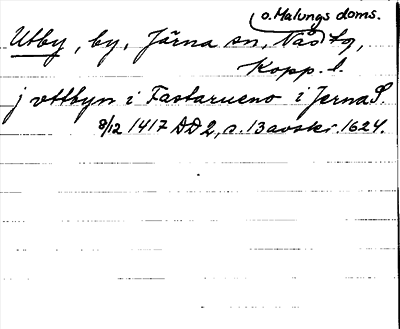 o. Malungs doms.
Utby, by, Järna sn, Nås tg,
Kopp. l.
j vttbyn i FastaruenO i Jerna S.
8/12 1417 DD 2, s. 13 avskr. 1624.